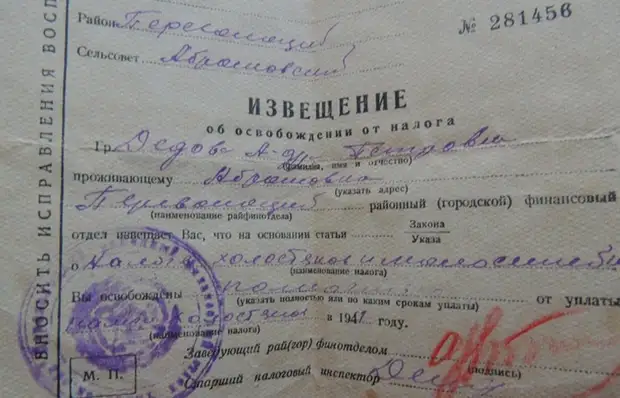 № 281456
Район Первомайский
Сельсовет Абрамовский
ИЗВЕЩЕНИЕ
об освобождении от налога
Гр. Дедова Петровна
(фамилия, имя и отчество)
проживающему Абрамовка
(указать адрес)
районный (городской) финансовый
(наименование райфинотдела)
отдел извещает Вас, что на основании статьи
Закона
Указа
о холостяков и малосемейн
(наименование налога)
Вы освобождены от уплаты
(указать полностью или по каким срокам уплаты)
холостяков в 194 году.
(наименование налога)
Заведующий рай(гор) финотделом
(подпись)
М. П.
Старший налоговый инспектор
ВНОСИТЬ ИСПРАВЛЕНИЯ ВОСП